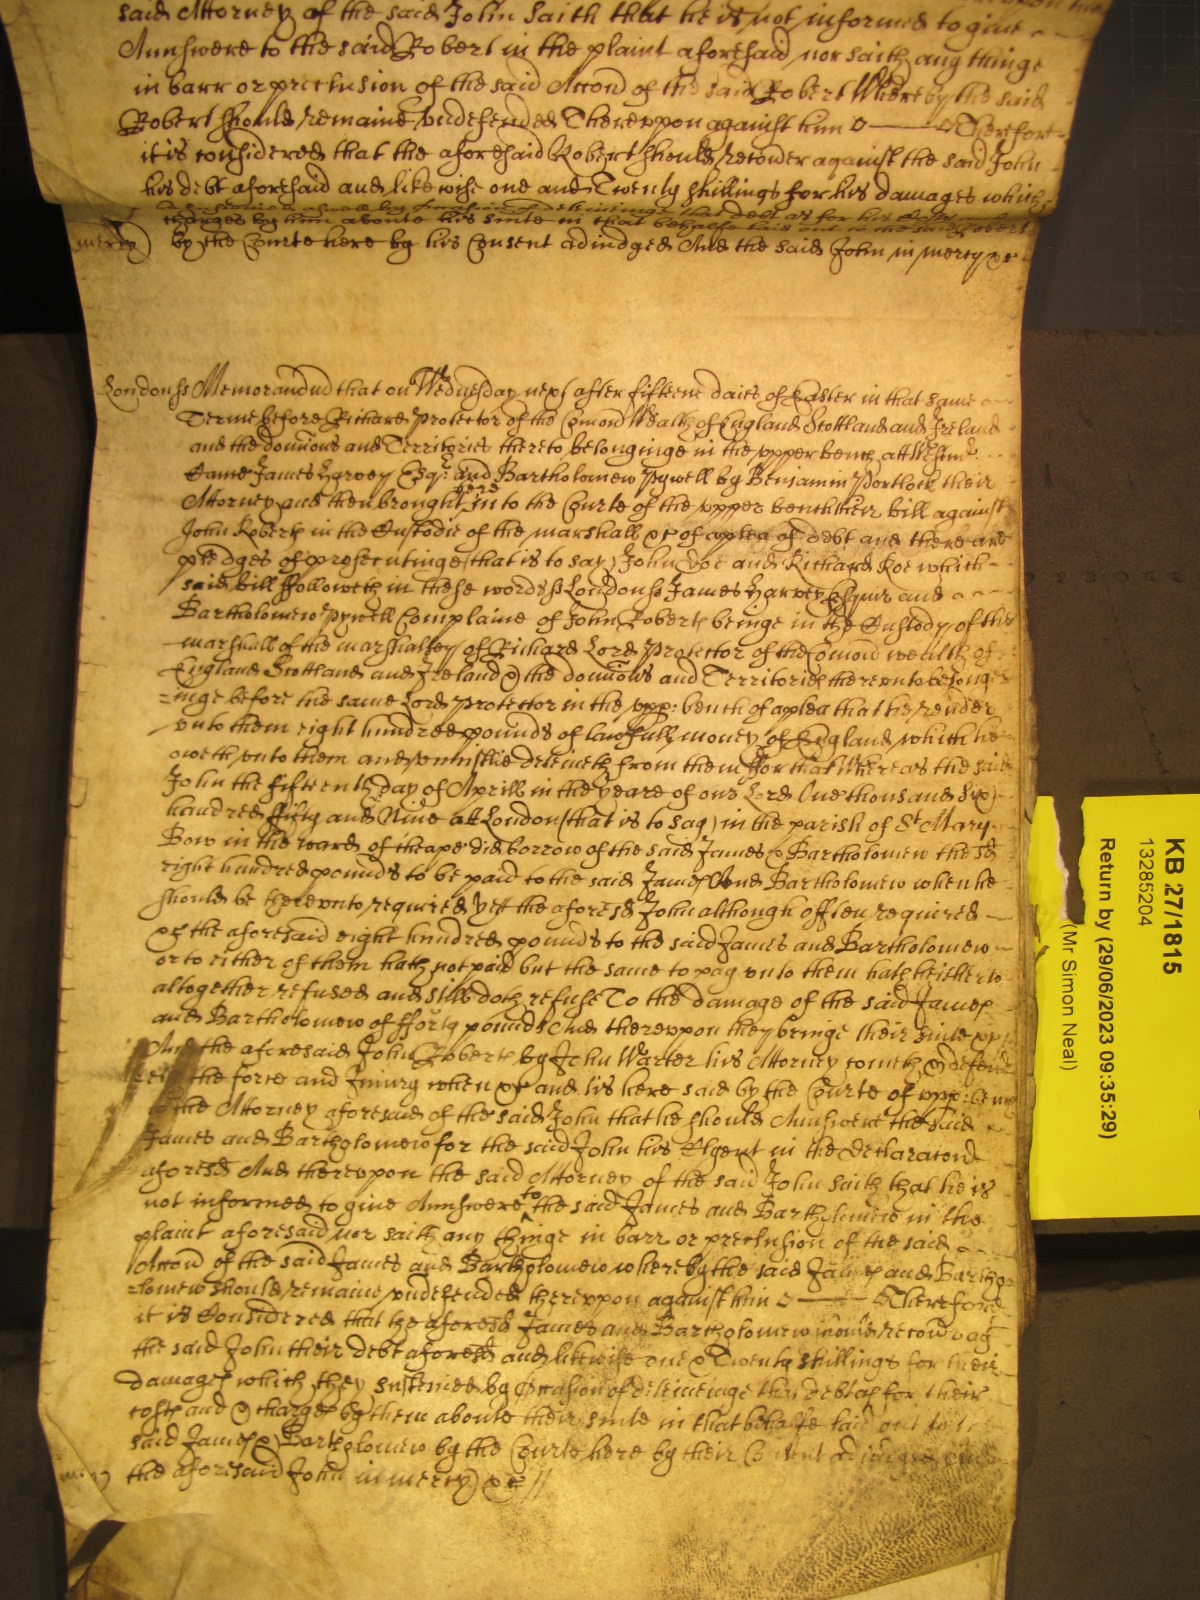 said Attorney of the said John saith that he is not informed to give
Annswere to the said Robert in the plaint aforesaid nor saith any thinge
in barr or preclusion of the said Accon̄ of the said Robert Whereby the said
Robert should remaine vndefended Therevppon against him o———o Therefore
it is considered that the aforesaid Robert should recouer against the said John
his debt aforesaid and likewise one and Twenty shillings for his damages which
charges by him aboute his suite in that behalfe laid out to the said Robert
mercy) by the Courte here by his Consent adiudged And the said John in mercy &c
Londonss Memorandū that on Wednesday next after fifteene daies of Easter in that same
Terme before Richard Protector of the Com̄on Wealth of England Scottland and Ireland
and the Domin̄ons and Territories thereto belonginge in the vpper bench att Westmr
Came James Harvey Esqr and Bartholomew Pywell by Benjamin Portlock their
Attorney and then brought here in to the Courte of the vpper bench their bill against
John Roberts in the Custodie of the marshall &c of a plea of Debt and there are
pledges of prosecutinge (that is to say) John Doe and Richard Roe which
said bill followeth in these wordss Londonss James Harvey Esquir and
Bartholomew Pywell Complaine of John Roberts beinge in the Custody of the
marshall of the marshalsey of Richard Lord Protector of the Com̄on wealth of
England Scottland and Ireland & the domin̄ons and Territories therevnto belong
=inge before the same Lord Protector in the vpp: bench of a plea that he render
vnto them eight hundred pounds of lawfull money of England which he
oweth vnto them and vniustlie deteineth from them ffor that Whereas the said
John the fifteenth day of Aprill in the yeare of our Lord One thousand six
hundred fifty and Nine att London (that is to say) in the parish of St Mary
Bow in the ward of Cheape did borrow of the said James & Bartholomew the sd
eight hundred pounds to be paid to the said James And Bartholomew when he
should be therevnto required yett the aforesd John although often required
&c the aforesaid eight hundred pounds to the said James and Bartholomew
or to either of them hath not paid but the same to pay vnto them hath hitherto
altogether refused and still doth refuse To the damage of the said James
and Bartholomew of fforty pounds And therevppon they bringe their suite &c
And the aforesaid John Roberts by John Warter his Attorney cometh & defend
eth the force and Iniury when &c and itis here said by the Courte of vpp: bench
to the Attorney aforesaid of the said John that he should Annswere the said
James and Bartholomew for the said John his Clyent in the declaracon̄
aforesd And therevppon the said Attorney of the said John saith that he is
not informed to give Annswere to the said James and Bartholomew in the
plaint aforesaid nor saith any thinge in barr or preclusion of the said
Accon̄ of the said James and Bartholomew whereby the said James and Bartho
=lomew should remaine vndefended therevppon against him o———o Therefore
it is Considered that the aforesd James and Bartholomew should recouer ag
the said John their debt aforesd and likewise one & Twenty shillings for their
damages which they susteined by occasion of deteineinge that debt as for their
costs and & charges by them aboute their suite in that behalfe laid out to the
said James & Bartholomew by the Courte here by their Consent adiudged And
mercy) the aforesaid John in mercy) &c //
KB 27/1815
13285204
Return by (29/06/2023 09:35:29)
(Mr Simon Neal)